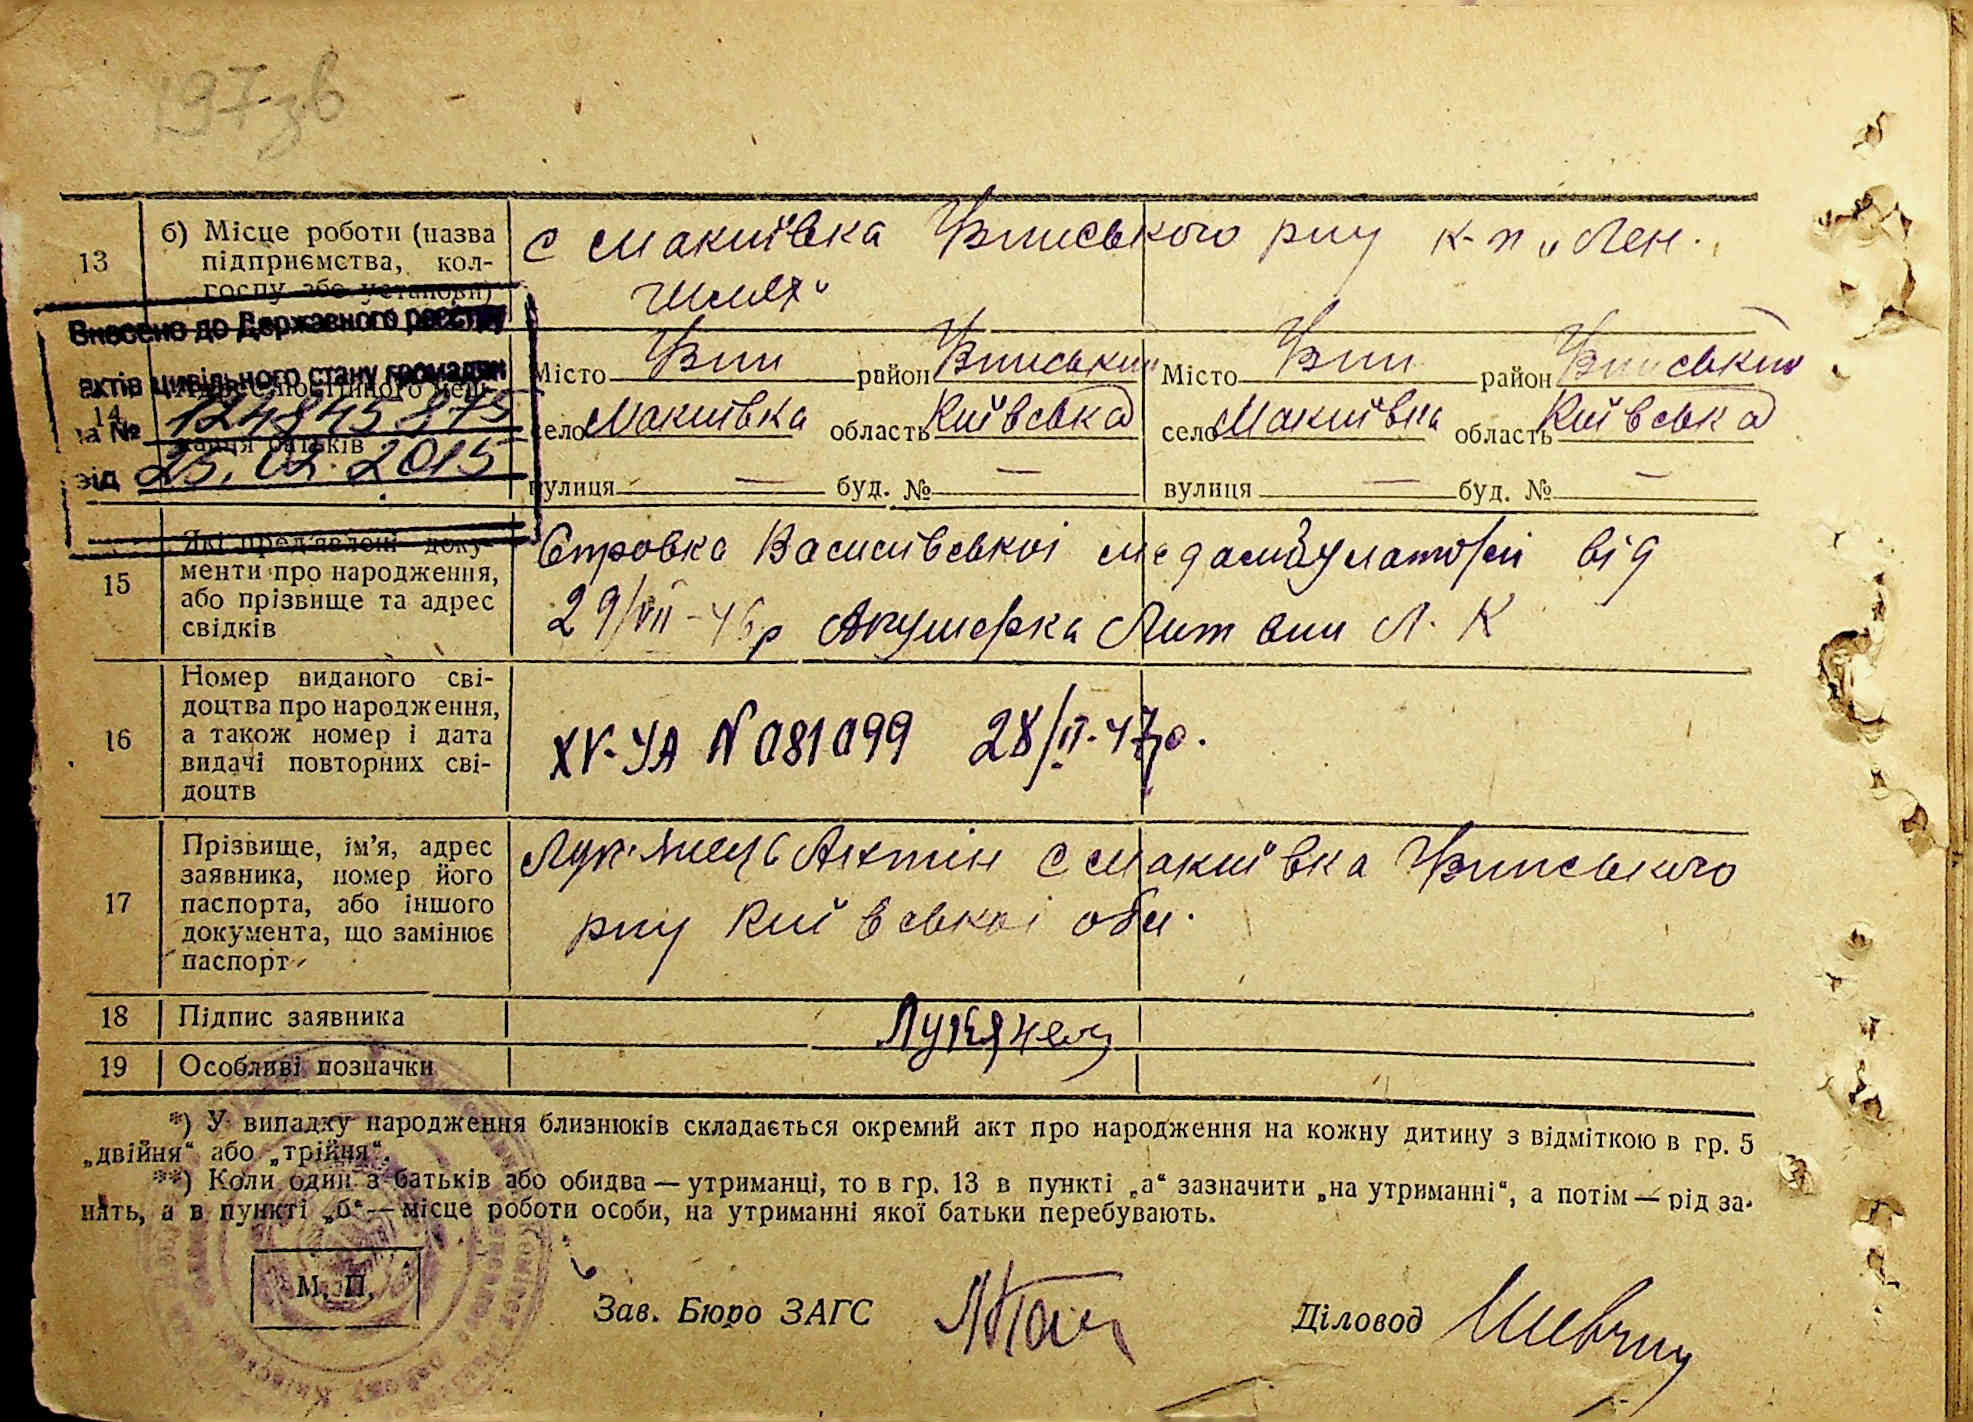 197 зв
13
б) Місце роботи (назва
підприємства, кол-
госпу або установи)
с Макиївка Району к-п „Лен.
шлях“
Внесено до Державного реєстру
актів цивільного стану громадян
за № 124845875
від 25.02.2015
14
Адрес постійного меш-
кання батьків
Місто район Місто район
село Макиївка область Київська село Макиївка область Київська
вулиця — буд. № — вулиця — буд. № —
15
Які пред'явлені доку-
менти про народження,
або прізвище та адрес
свідків
від
29/VII-46р Акушерка Л. К
16
Номер виданого сві-
доцтва про народження,
а також номер і дата
видачі повторних сві-
доцтв
XV-УА N 081099 28/II-47р.
17
Прізвище, ім'я, адрес
заявника, номер його
паспорта, або іншого
документа, що замінює
паспорт
с Макиївка
р-ну Київської обл.
18 Підпис заявника Лукянец
19 Особливі позначки
*) У випадку народження близнюків складається окремий акт про народження на кожну дитину з відміткою в гр. 5
„двійня“ або „трійня“.
**) Коли один з батьків або обидва — утриманці, то в гр. 13 в пункті „а“ зазначити „на утриманні“, а потім — рід за-
нять, а в пункті „б“ — місце роботи особи, на утриманні якої батьки перебувають.
М. П.
Зав. Бюро ЗАГС
Діловод